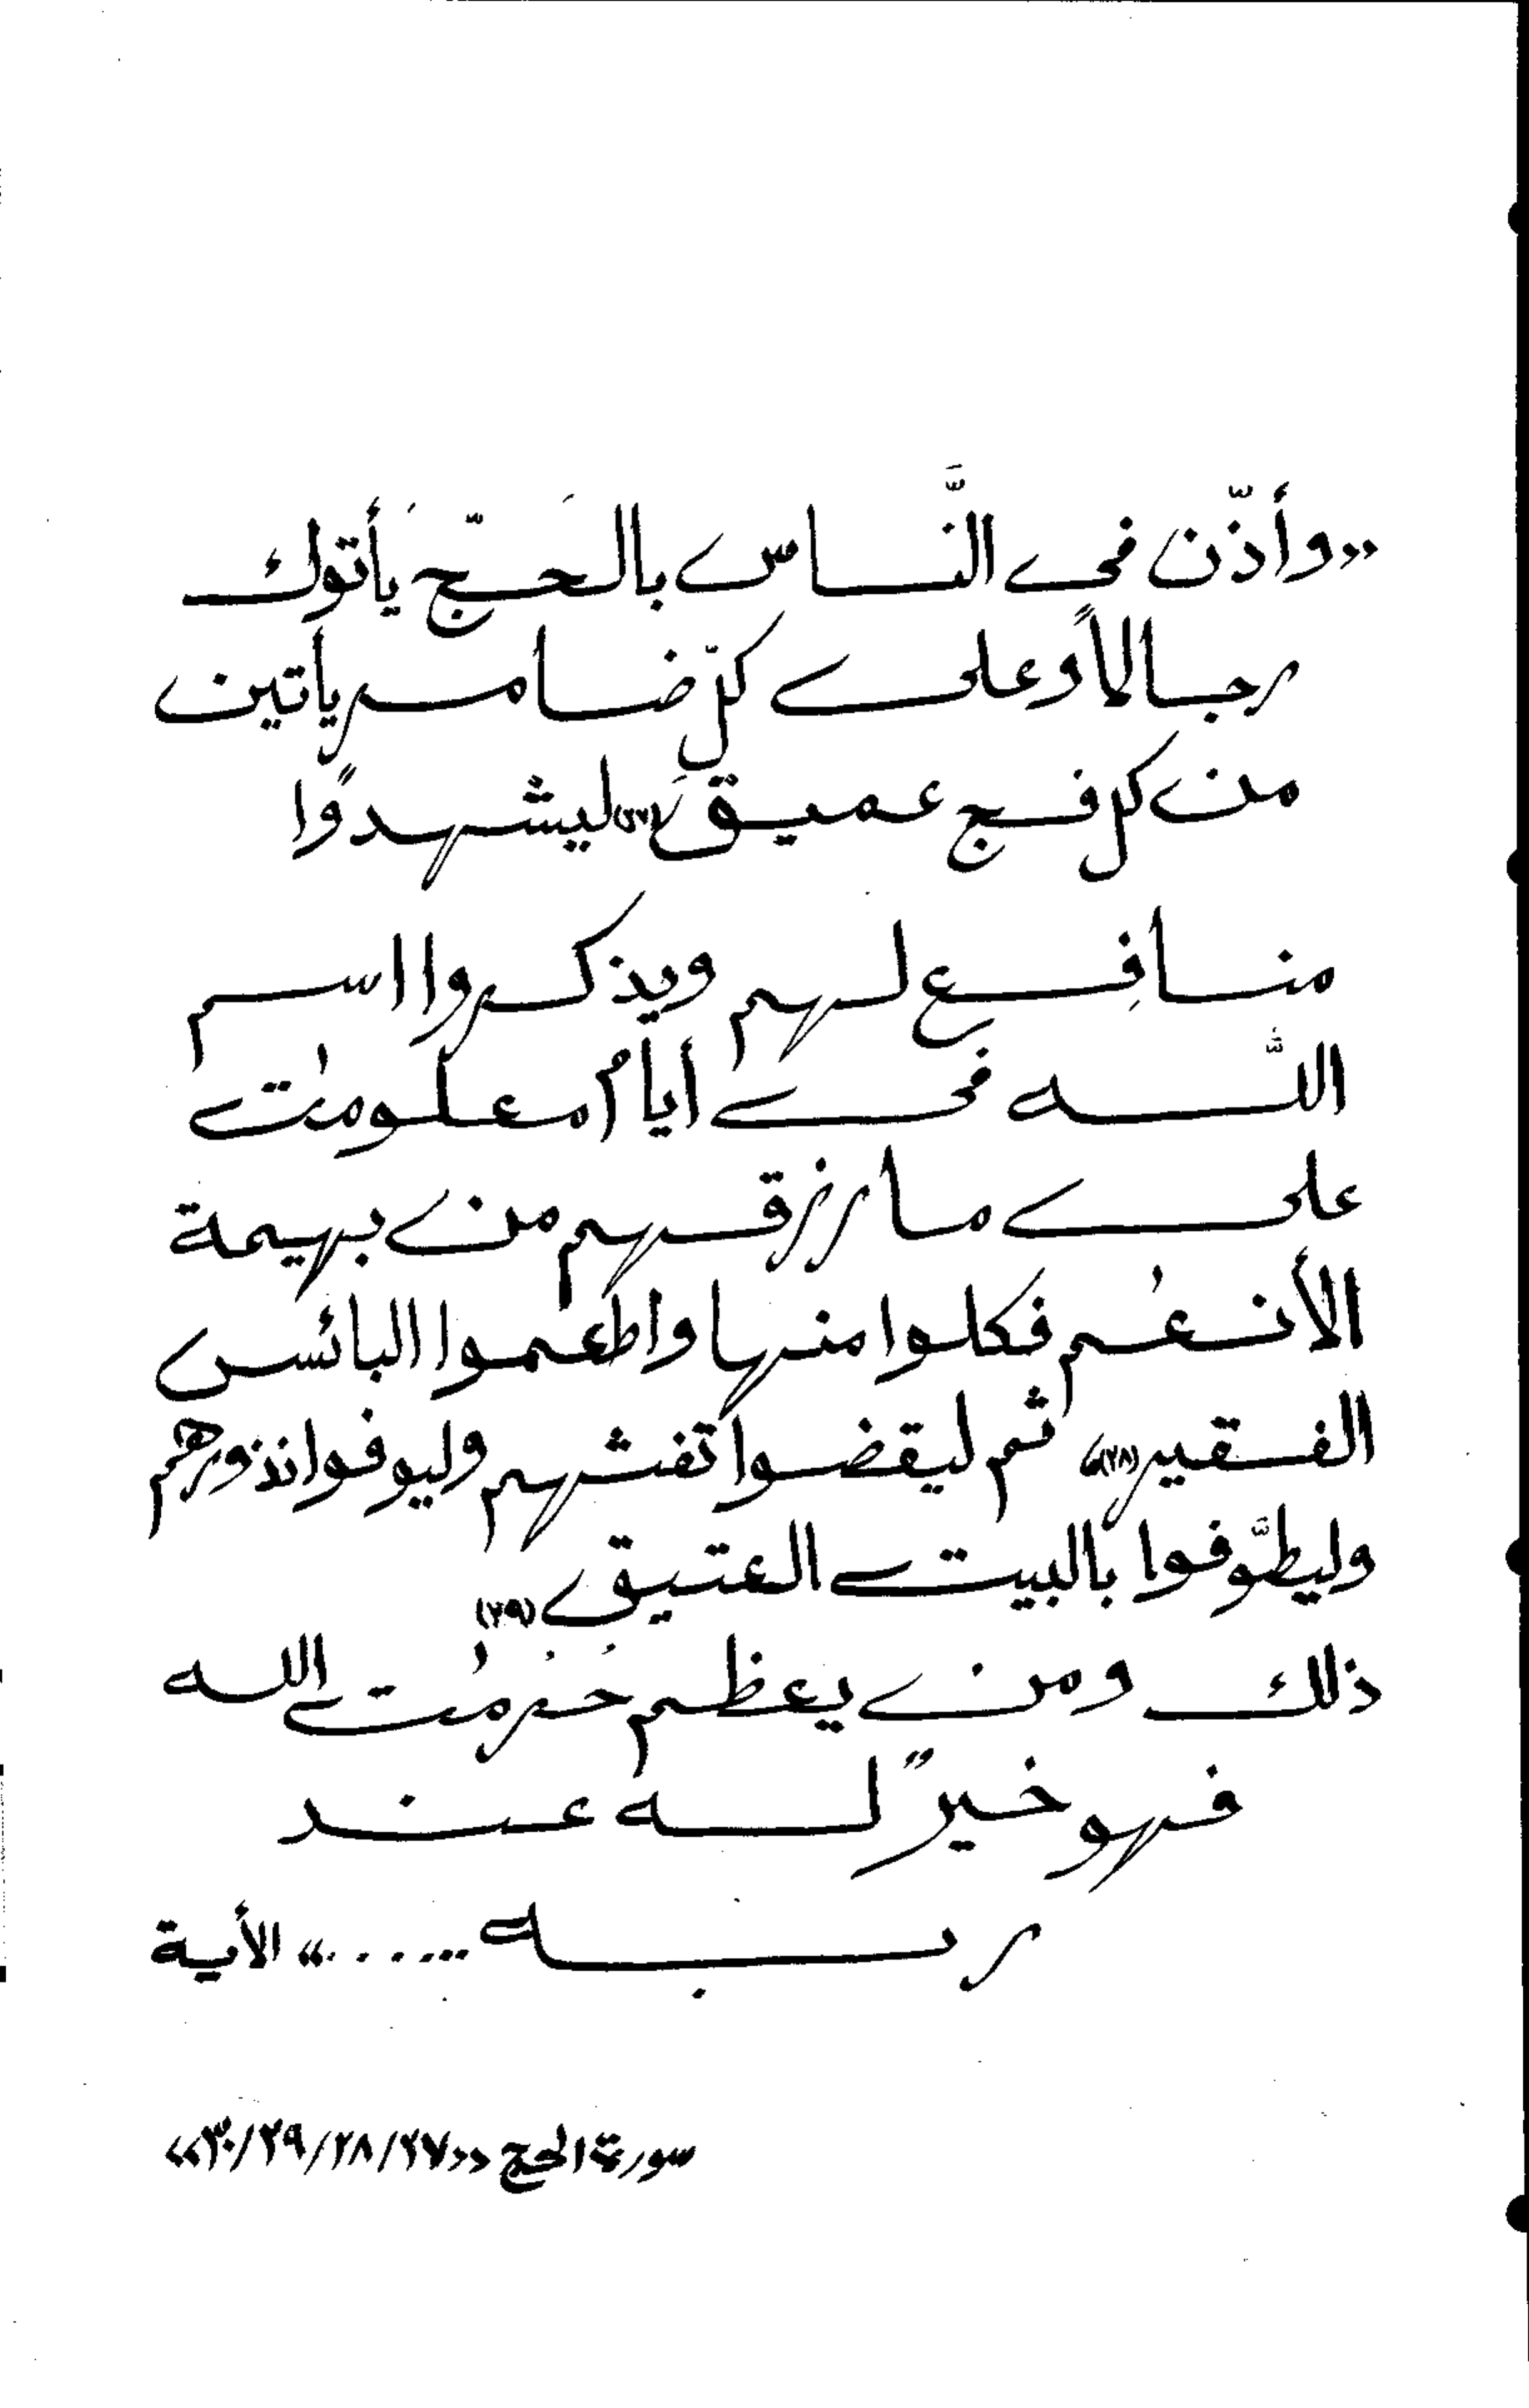 «وأذّن فى النَّاس بالحَجّ يَأتوك
رجالاً وعلى كلّ ضامر يأتين
من كل فج عميق (٢٧) ليشهدوا
منافِع لهم ويذكروا اسم
اللّه فى أيام معلومٰت
على ما رزقهم من بهيمة
الأنعٰم فكلوا منها واطعموا البائس
الفقير (٢٨) ثم ليقضوا تفثهم وليوفوا نذورهم
وليطَّوفوا بالبيت العتيق (٢٩)
ذلك ومن يعظم حُرمٰت الله
فهو خيرٌ له عند
ربه ......» الأية
سورة الحج «٢٧/٢٨/٢٩/٣٠»